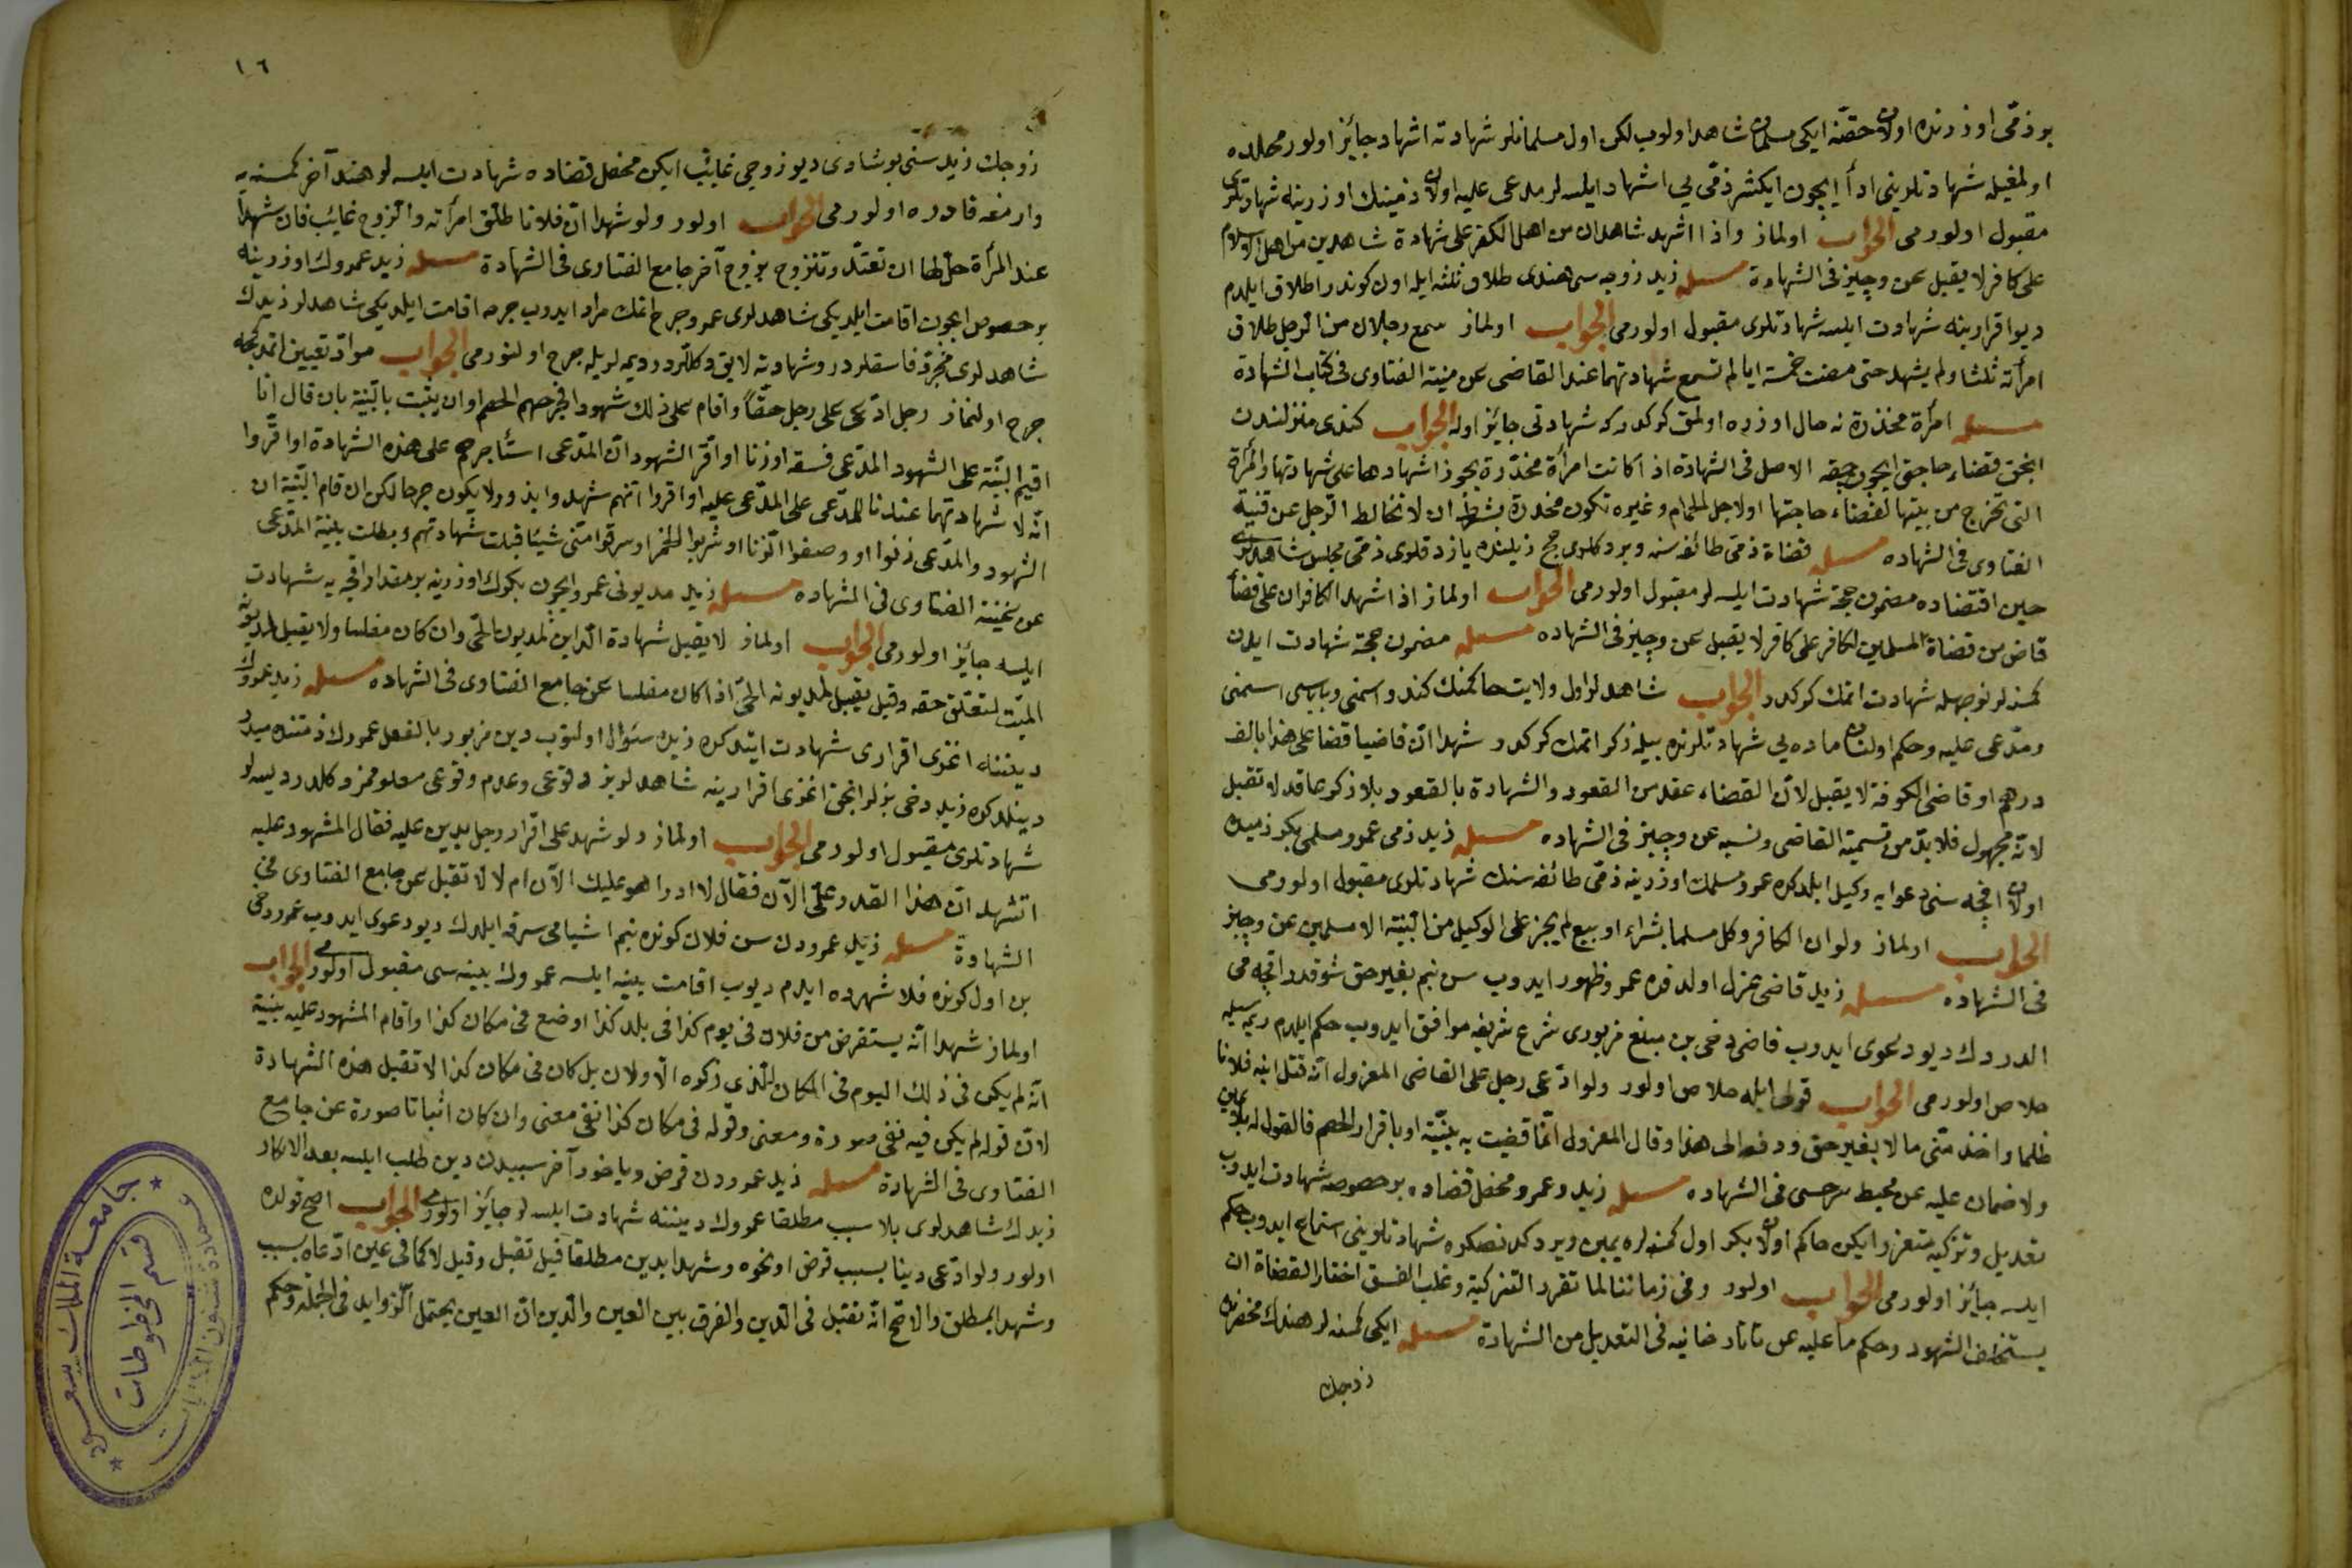 بر ذمّى اوزرنده اولان حقّنه ايكى مسلمان شاهد اولوب لكن اول مسلمانلر شهادته اشهاد جائز اولور محلده
اولمغيله شهادتلرينى ادأ ايچون ايكيشر ذمّى يى اشهاد ايلسه لر مدعى عليه اولان ذمينك اوزرينه شهادتلرى
مقبول اولورمى الجواب اولماز واذا اشهد شاهدان من اهل الكفر على شهادة شاهدين من اهل الاسلام
على كافر لا يقبل عن وجيز فى الشهادة مسئله زيد زوجه سى هندى طلاق ثلثه ايله اول كوندر اطلاق ايلدم
ديو اقرارينه شهادت ايلسه شهادتلرى مقبول اولورمى الجواب اولماز سمع رجلان من الرجل طلاق
امرأته ثلثا ولم يشهد حتى مضت خمسة ايام لم تسمع شهادتهما عند القاضى عن منية الفتاوى فى كتاب الشهادة
مسئله امرأة مخدّرة نه حال اوزره اولمق كركدر كه شهادتى جائز اوله الجواب كندى منزلندن
انجق قضاء حاجتى ايچون چيقه الاصل فى الشهادة اذا كانت امرأة مخدّرة يجوز اشهادها على شهادتها والمرأة
التى تخرج من بيتها لقضاء حاجتها او لاجل الحمام وغيره تكون مخدرة بشرط ان لا تخالط الرجل عن قنية
الفتاوى فى الشهاده مسئله قضاة ذمّى طائفه سنه ويردكلرى حجج ذيلنده يازدقلرى ذمّى مجلس شاهدلرى
حين اقتضاده مضمون حجّة شهادت ايلسه لر مقبول اولورمى الجواب اولماز اذا شهد الكافران على قضأ
قاض من قضاة المسلمين لكافر على كافر لا يقبل عن وجيز فى الشهاده مسئله مضمون حجّة شهادت ايدن
كمسنه لر نوجهله شهادت اتمك كركدر الجواب شاهدلر اول ولايت حاكمنك كندو اسمنى وباباسى اسمنى
ومدّعى عليه وحكم اولنان ماده يى شهادتلرنده بيله ذكر اتمك كركدر شهدا انّ قاضيا قضا على هذا بالف
درهم او قاضى الكوفة لا يقبل لانّ القضاء عقد من القعود والشهادة بالقعود بلا ذكر عاقد لا تقبل
لانه مجهول فلا بدّ من تسمية القاضى ونسبه عن وجيز فى الشهاده مسئله زيد ذمى عمرو مسلمى بكر ذميده
اولان اقچه سنى دعوايه وكيل ايلدكده عمرو مسلمك اوزرينه ذمّى طائفه سنك شهادتلرى مقبول اولورمى
الجواب اولماز ولو ان الكافر وكل مسلما بشراء او بيع لم يجز على الوكيل من البيّنة الا مسلمين عن وجيز
فى الشهاده مسئله زيد قاضى عزل اولندقده عمرو ظهور ايدوب سن بنم بغير حق شو قدر اقچه مى
الدردك ديو دعوى ايدوب قاضى دخى بن مبلغ مزبورى شرع شريفه موافق ايدوب حكم ايلدم ديمه سيله
خلاص اولورمى الجواب قولى ايله خلاص اولور ولو ادّعى رجل على القاضى المعزول انّه قتل ابنه فلانا
ظلما واخذ منّى مالا بغير حق ودفع الى هذا وقال المعزول انّما قضيت به ببيّنة او باقرار الخصم فالقول له بلا يمين
ولا ضمان عليه عن محيط سرخسى فى الشهاده مسئله زيد وعمرو محفل قضاده بر خصوصه شهادت ايدوب
تعديل وتزكيه متعذر ايكن حاكم اولان بكر اول كمسنه لره يمين ويردكدنصكره شهادتلرينى استماع ايدوب حكم
ايلسه جائز اولورمى الجواب اولور وفى زماننا لما تقرر التزكية وغلب الفسق اختار القضاة ان
يستحلف الشهود وحكم ما عليه عن تاتار خانيه فى التعديل من الشهادة مسئله ايكى كمسنه لر هندك محضرنده
زوجك
١٦
زوجك زيد سنى بوشادى ديو زوجى غائب ايكن محفل قضاده شهادت ايلسه لر هند آخر كمسنه يه
وارمغه قادره اولورمى الجواب اولور ولو شهدا انّ فلانا طلّق امرأته والزوج غائب فان شهدا
عند المرأة حلّ لها ان تعتدّ وتتزوج بزوج آخر جامع الفتاوى فى الشهادة مسئله زيد عمروك اوزرينه
بر خصوص ايچون اقامت ايلديكى شاهدلرى عمرو جرح اتمك مراد ايدوب جرحه اقامت ايلديكى شاهدلر زيدك
شاهدلرى مجرّد فاسقلردر وشهادته لايق دكللردر ديمه لريله جرح اولنورمى الجواب موادّ تعيين اتمدكجه
جرح اولنماز رجل ادّعى على رجل حقّاً واقام على ذلك شهود افجرحهم الخصم اوان يثبت بالبيّنة بان قال انا
اقيم البيّنة على الشهود المدّعى فسقه او زنا او اقرّ الشهود انّ المدّعى استأجرهم على هذه الشهادة او اقرّوا
انّه لا شهادتهما عندنا للمدّعى على المدّعى عليه او اقروا انّهم شهد وابذور ولا يكون جرحا لكن ان قام البيّنة ان
الشهود والمدّعى زنوا او وصفوا الزنا او شربوا الخمر او سرقوا منّى شيئا قبلت شهادتهم وبطلت بيّنة المدّعى
عن غنية الفتاوى فى الشهاده مسئله زيد مديونى عمرو ايچون بكرك اوزرينه بر مقدار اقچه يه شهادت
ايلسه جائز اولورمى الجواب اولماز لا يقبل شهادة الدّاين لمديون الحىّ وان كان مفلسا ولا يقبل لمديونه
الميّت لتعلّق حقه وقيل يقبل لمديونه الحىّ اذا كان مفلسا عن جامع الفتاوى فى الشهاده مسئله زيد عمروك
ديننه اغزى اقرارى شهادت ايتدكده زيدن سئوال اولنوب دين مزبور بالفعل عمروك ذمتنده ميدر
دينلدكده زيد دخى بزلر انجق اغزى اقرارينه شاهدلريز وقوعى وعدم وقوعى معلوممز دكلدر ديسه لر
شهادتلرى مقبول اولورمى الجواب اولماز ولو شهد على اقرار رجل بدين عليه فقال المشهود عليه
اتشهد انّ هذا القدر علىّ الآن فقال لا ادرا هو عليك الآن ام لا لا تقبل عن جامع الفتاوى فى
الشهادة مسئله زيد عمرودن سن فلان كونده بنم اشيامى سرقه ايلدك ديو دعوى ايدوب عمرو دخى
بن اول كونده فلا شهرده ايدم ديوب اقامت بينه ايلسه عمروك بينه سى مقبول اولورمى الجواب
اولماز شهدا انّه يستقرض من فلان فى يوم كذا فى بلد كذا او ضع فى مكان كذا واقام المشهود عليه بيّنة
انّه لم يكن فى ذلك اليوم فى المكان الّذى ذكره الاولان بل كان فى مكان كذا لا تقبل هذه الشهادة
لانّ قوله لم يكن فيه نفى صورة ومعنى وقوله فى مكان كذا نفى معنى وان كان اثباتا صورة عن جامع
الفتاوى فى الشهادة مسئله زيد عمرودن قرض ويا خود آخر سببدن دين طلب ايلسه بعد الانكار
زيدك شاهدلرى بلا سبب مطلقا عمروك ديننه شهادت ايلسه لر جائز اولورمى الجواب اصح قولده
اولور ولو ادّعى دينا بسبب قرض او نحوه وشهدا بدين مطلقا قيل تقبل وقيل لا كما فى عين ادّعاه بسبب
وشهدا بمطلق والاصحّ انّه تقبل فى الدين والفرق بين العين والدين انّ العين يحتمل الزوايد فى الجمله وحكم
جامعة الملك سعود
قسم المخطوطات
عمادة شئون المكتبات